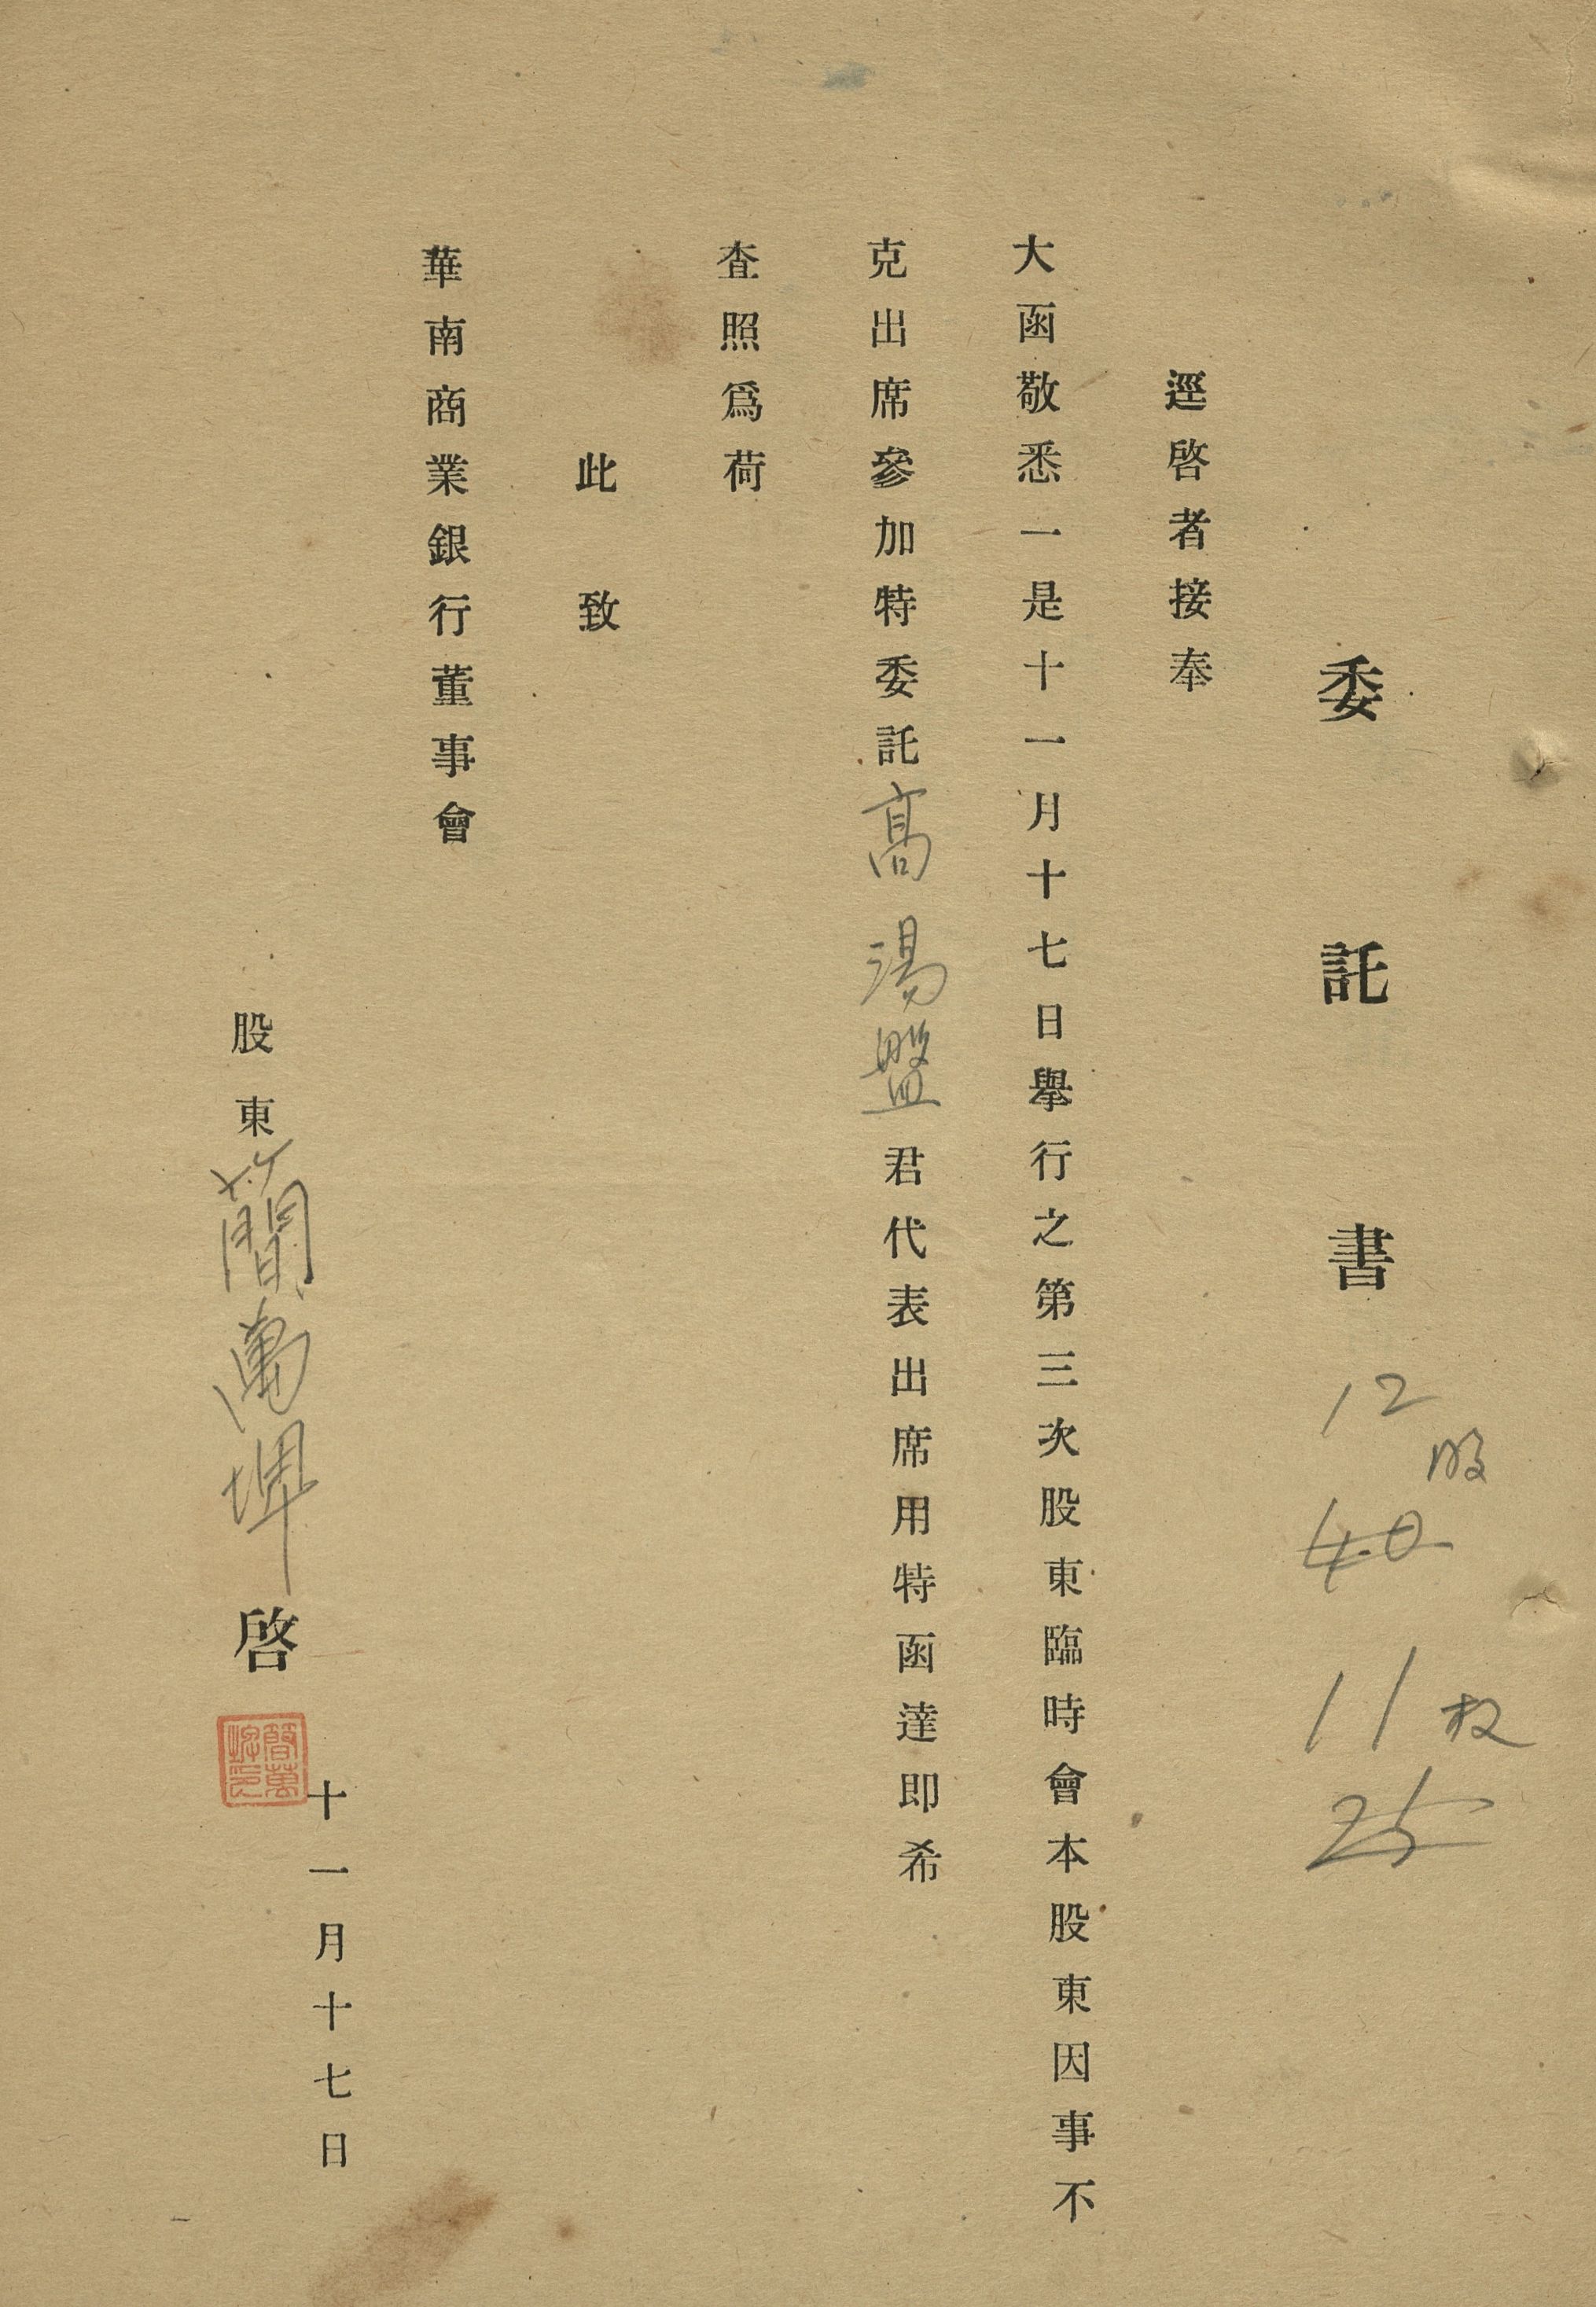 委託書
12股
40
11枚
25
逕啓者接奉
大函敬悉一是十一月十七日舉行之第三次股東臨時會本股東因事不
克出席參加特委託高湯盤君代表出席用特函達即希
査照爲荷
此致
華南商業銀行董事會
十一月十七日
股東簡萬埤啓